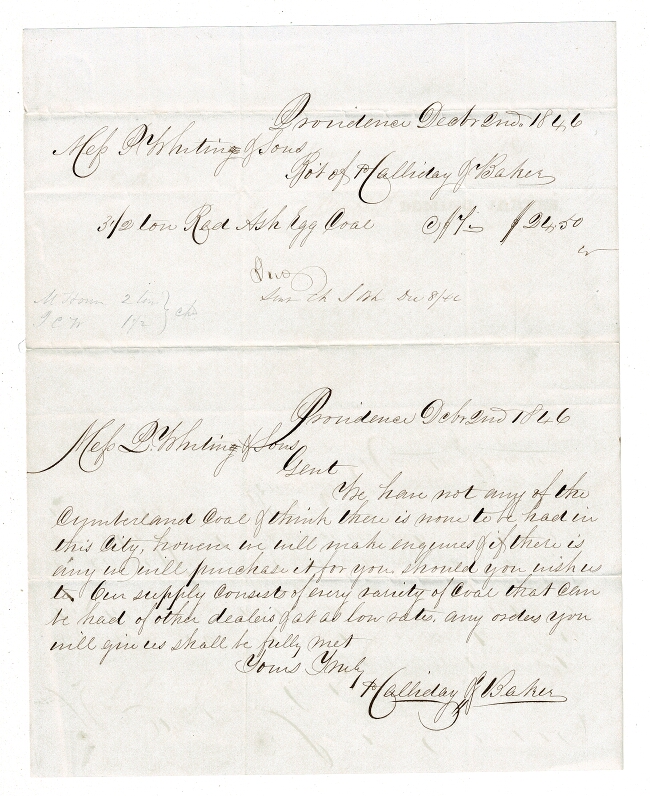 Providence Decbr 2nd. 1846
Mess P. Whiting & Sons
Bot of Halliday & Baker
3 1/2 ton Red Ash Egg Coal @ $7- $24.50
2 ton
1 1/2
Dec 8/46
Providence Decbr 2nd 1846
Mess P. Whiting & Sons
Gent
We have not any of the
Cumberland Coal & think there is none to be had in
this City, however we will make enquires & if there is
any we will purchase it for you should you wish us
to Our supply consist of every variety of Coal that can
be had of other dealers & at as low rates, any orders you
will give us shall be fully met
Yours Truly
Halliday & Baker